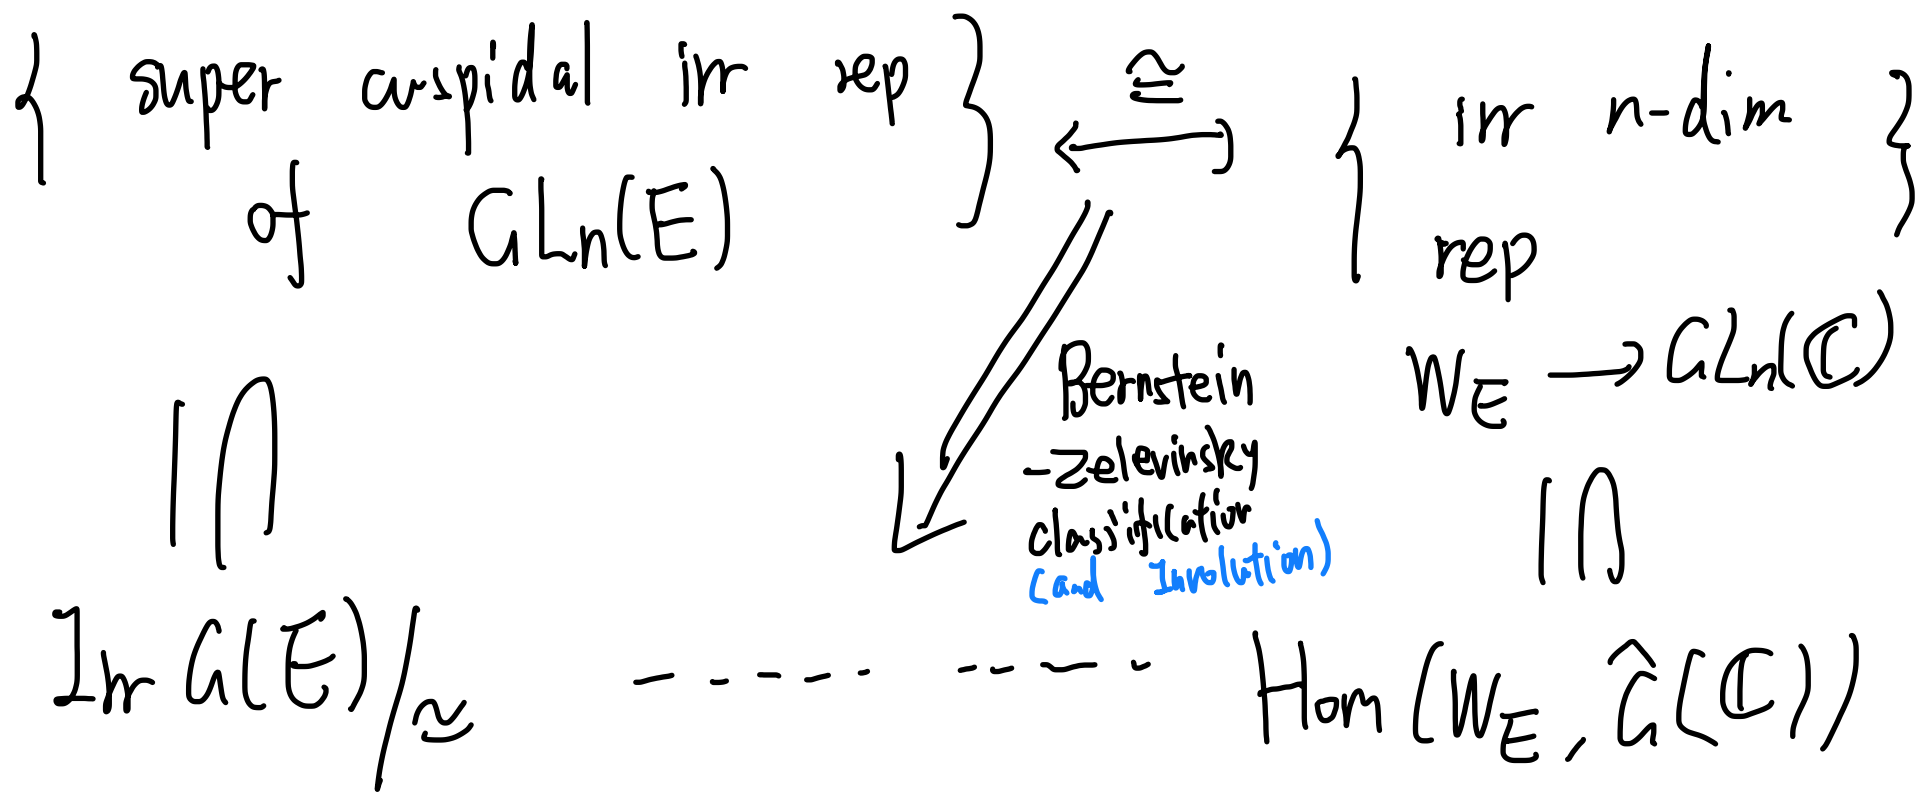 { super cuspidal irr rep of GLn(E) }
≅
{ irr n-dim rep W_E → GLn(ℂ) }
Bernstein
-Zelevinsky
classification
(and Involution)
Irr G(E)/≃ - - - - - - - - Hom(W_E, Ĝ(ℂ))